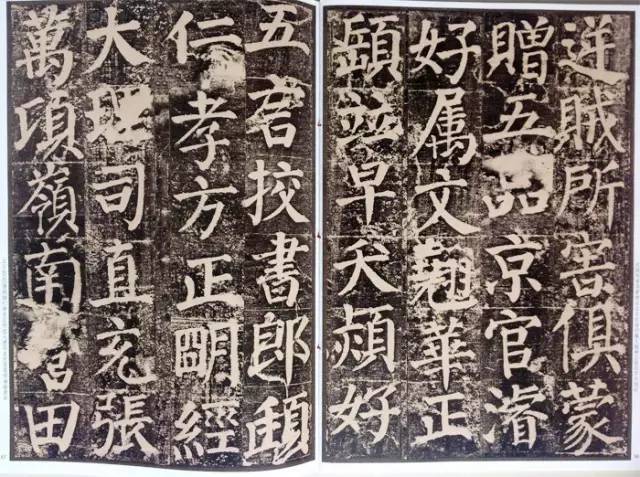 逆賊所害俱蒙
贈五品京官濬
好属文翹華正
頣並早夭熲好
五言挍書郎頲
仁孝方正眀經
大理司直充張
萬頃嶺南營田